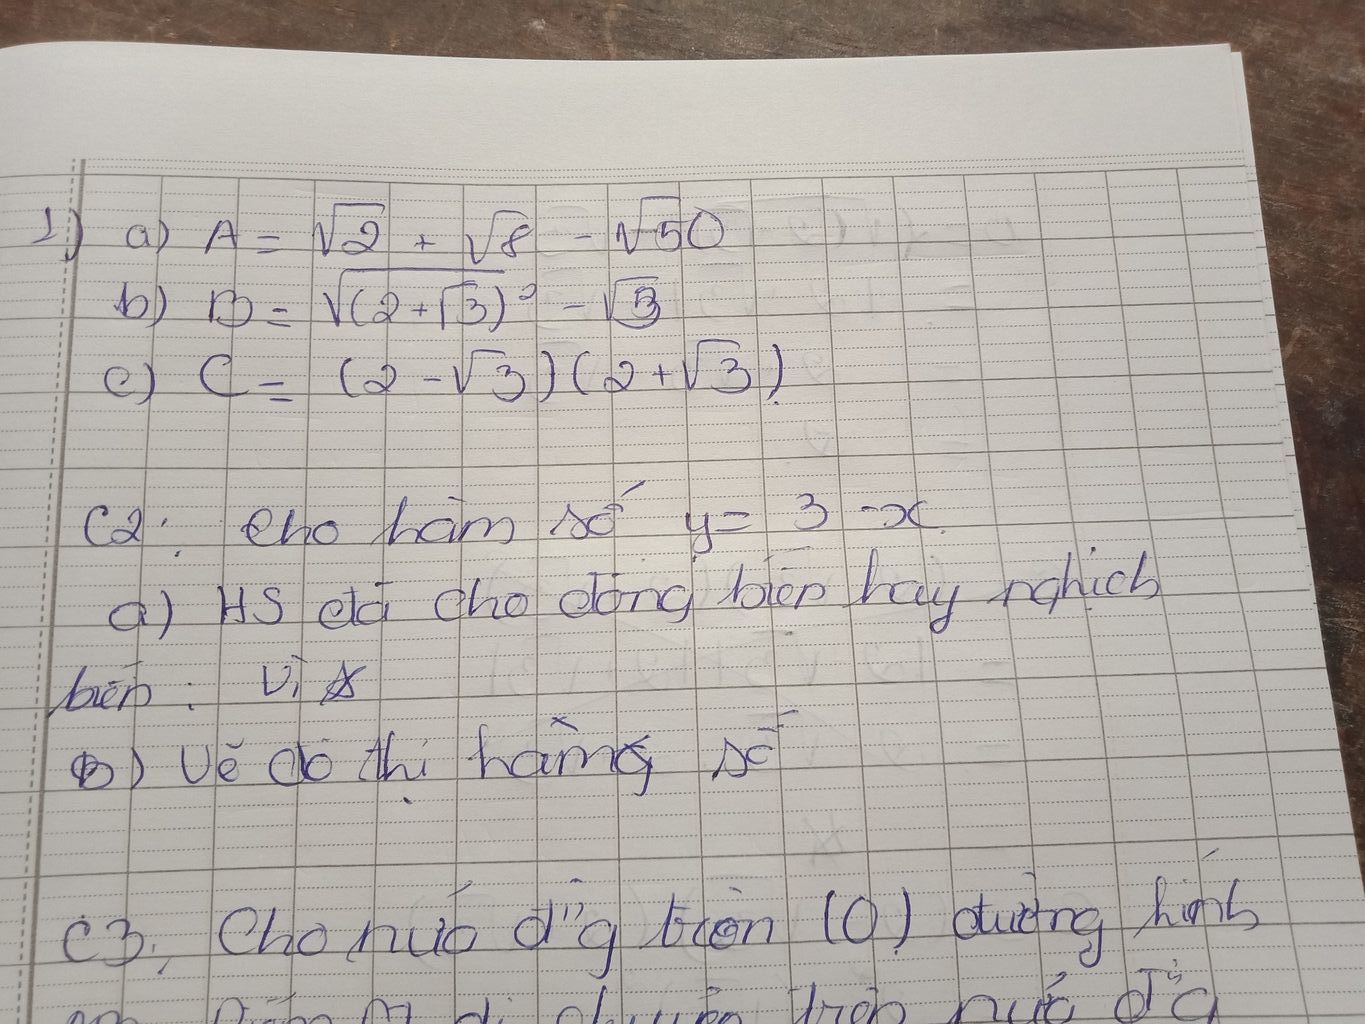 1) a) A = √2 + √8 - √50
b) B = √(2+√3)² - √3
c) C = (2-√3)(2+√3)
C2: Cho hàm số y= 3 -x
a) HS đã cho đồng biến hay nghịch
biến: Vì
b) Vẽ đồ thị hàm số
C3: Cho nửa đg tròn (O) đường kính
M di chuyển trên nửa đg